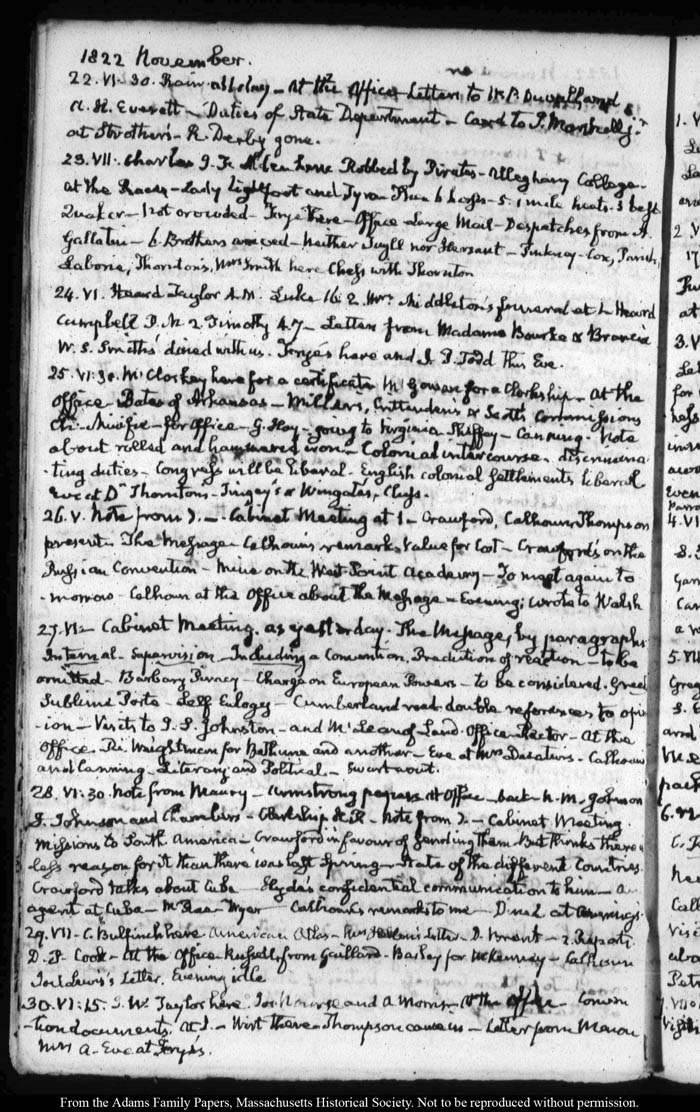 1822 November.
22. VI. 30. Rain all day – At the Office – Letters to W. P. Duvall and
A. H. Everett – Duties of State Department – Card to J.
at Strother's – R. Derby gone.
23. VII. Charles J. Robbed by Pirates – Alleghany College.
at the Races – Lady Lightfoot and 6 1 mile heats. 3 best
Quaker – Not crowded – there – Office – Large Mail – Despatches from A.
Gallatin – 6. Brothers – Neither nor Hersant – Pinkney – Cox,
Laborie, Thorntons, Mrs Smith here Chess with Thornton
24. VI. Heard Taylor A.M. Luke 16. 2. Mrs. Middleton's funeral at 2 Heard
Campbell P.M. 2 Timothy 4.7 – Letters from Madame Bourke &
W. S. Smiths dined with us. here and J. P. Todd this Eve.
25. VI. 30. McCloskey here for a certificate McGowan for a Clerkship – At the
Office – Bates of Arkansas – Miller's, Crittenden's & Scott's Commissions
for Office – G. Hay – going to Virginia – Canning. Note
about rolled and hammered iron – Colonial intercourse. discrimina-
-ting duties – Congress will be liberal – English colonial settlements liberal
Eve at Dr Thorntons – Tingey's & Wingates, Chess.
26. V. Note from – Cabinet Meeting at 1 – Crawford, Calhoun, Thompson
present – The Message – Calhoun's remarks. Value for Cost – Crawford's on the
Russian Convention – Mine on the West Point Academy – To meet again to
-morrow – Calhoun at the Office about the Message – Evening; wrote to Walsh
27. VI – Cabinet Meeting. as yesterday. The Message, by paragraphs
Internal – Supervision – Including a Convention, Prediction of reaction – to be
omitted – Barbary Piracy – Charge on European Powers – to be considered. Greeks
Sublime Porte – Self Eulogy – Cumberland road. double references to opin
-ion – Visits to J. S. Johnston – and McLean of Land Office Rector – At the
Office. Weightman for Bethune and another – Eve at Mrs Decaturs – Calhoun
and Canning – Literary and Political – Ewart out.
28. VI. 30. Note from Maury – Armstrong papers at Office back – R. M. Johnson
J. Johnson and Chambers – Clerkship – Note from – Cabinet Meeting.
Missions to South America – Crawford in favour of sending them But thinks there
less reason for it than there was last Spring – State of the different Countries.
Crawford talks about Cuba – confidential communication to him – an
agent at Cuba – Calhoun's remarks to me – Dined at Cannings.
29. VII – C. Bulfinch here American Atlas – letter D. Brent – 2. Reports
D. P. Cook – At the Office Russell, from Gaillard – Bailey for McKenney – Calhoun
Jos. Lewis's Letter. Evening idle
30. VI: 15. J. W. Taylor here. Jos. Nourse and A Morris – At the Office – Conven
-tion documents. At 1. – Wirt there – Thompson came in – Letter from
Mrs A – Eve at
From the Adams Family Papers, Massachusetts Historical Society. Not to be reproduced without permission.